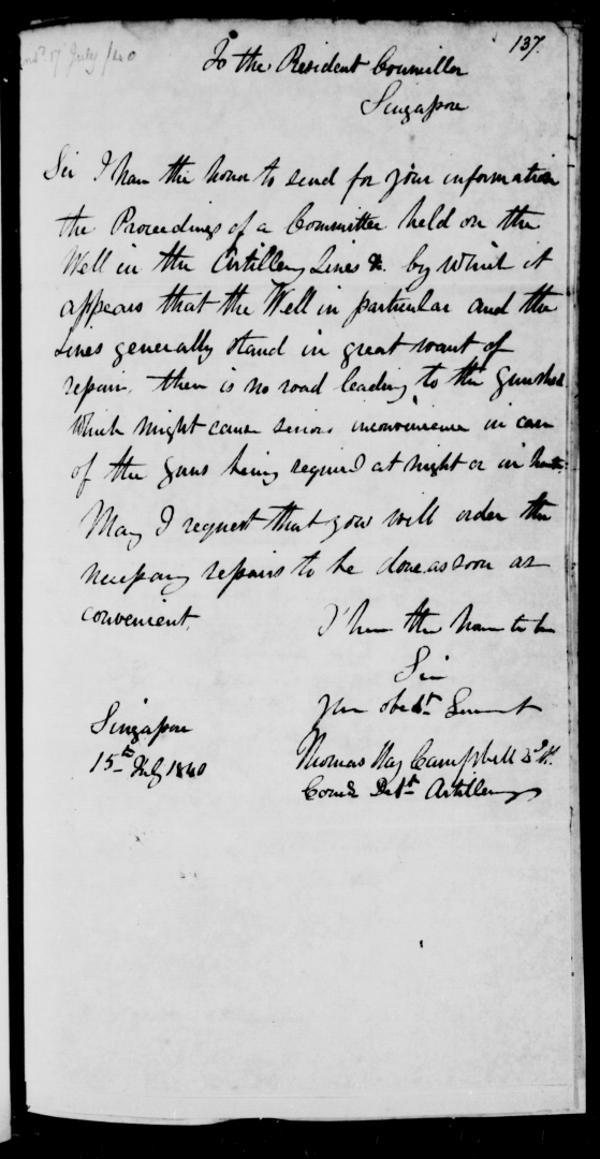 137.
17 July /40
To the Resident Councillor
Singapore
Sir I have the honor to send for your information
the Proceedings of a Committee held on the
Well in the Artillery Lines &c. by which it
appears that the Well in particular and the
Lines generally stand in great want of
repair, there is no road leading to the Gunshed
which might cause serious inconvenience in case
of the Guns being required at night or in haste.
May I request that you will order the
necessary repairs to be done as soon as
convenient.
I have the honor to be
Sir
Your obedt. Servant
Singapore
15th July 1840
Thomas Hay Campbell
Comdg Dett. Artillery